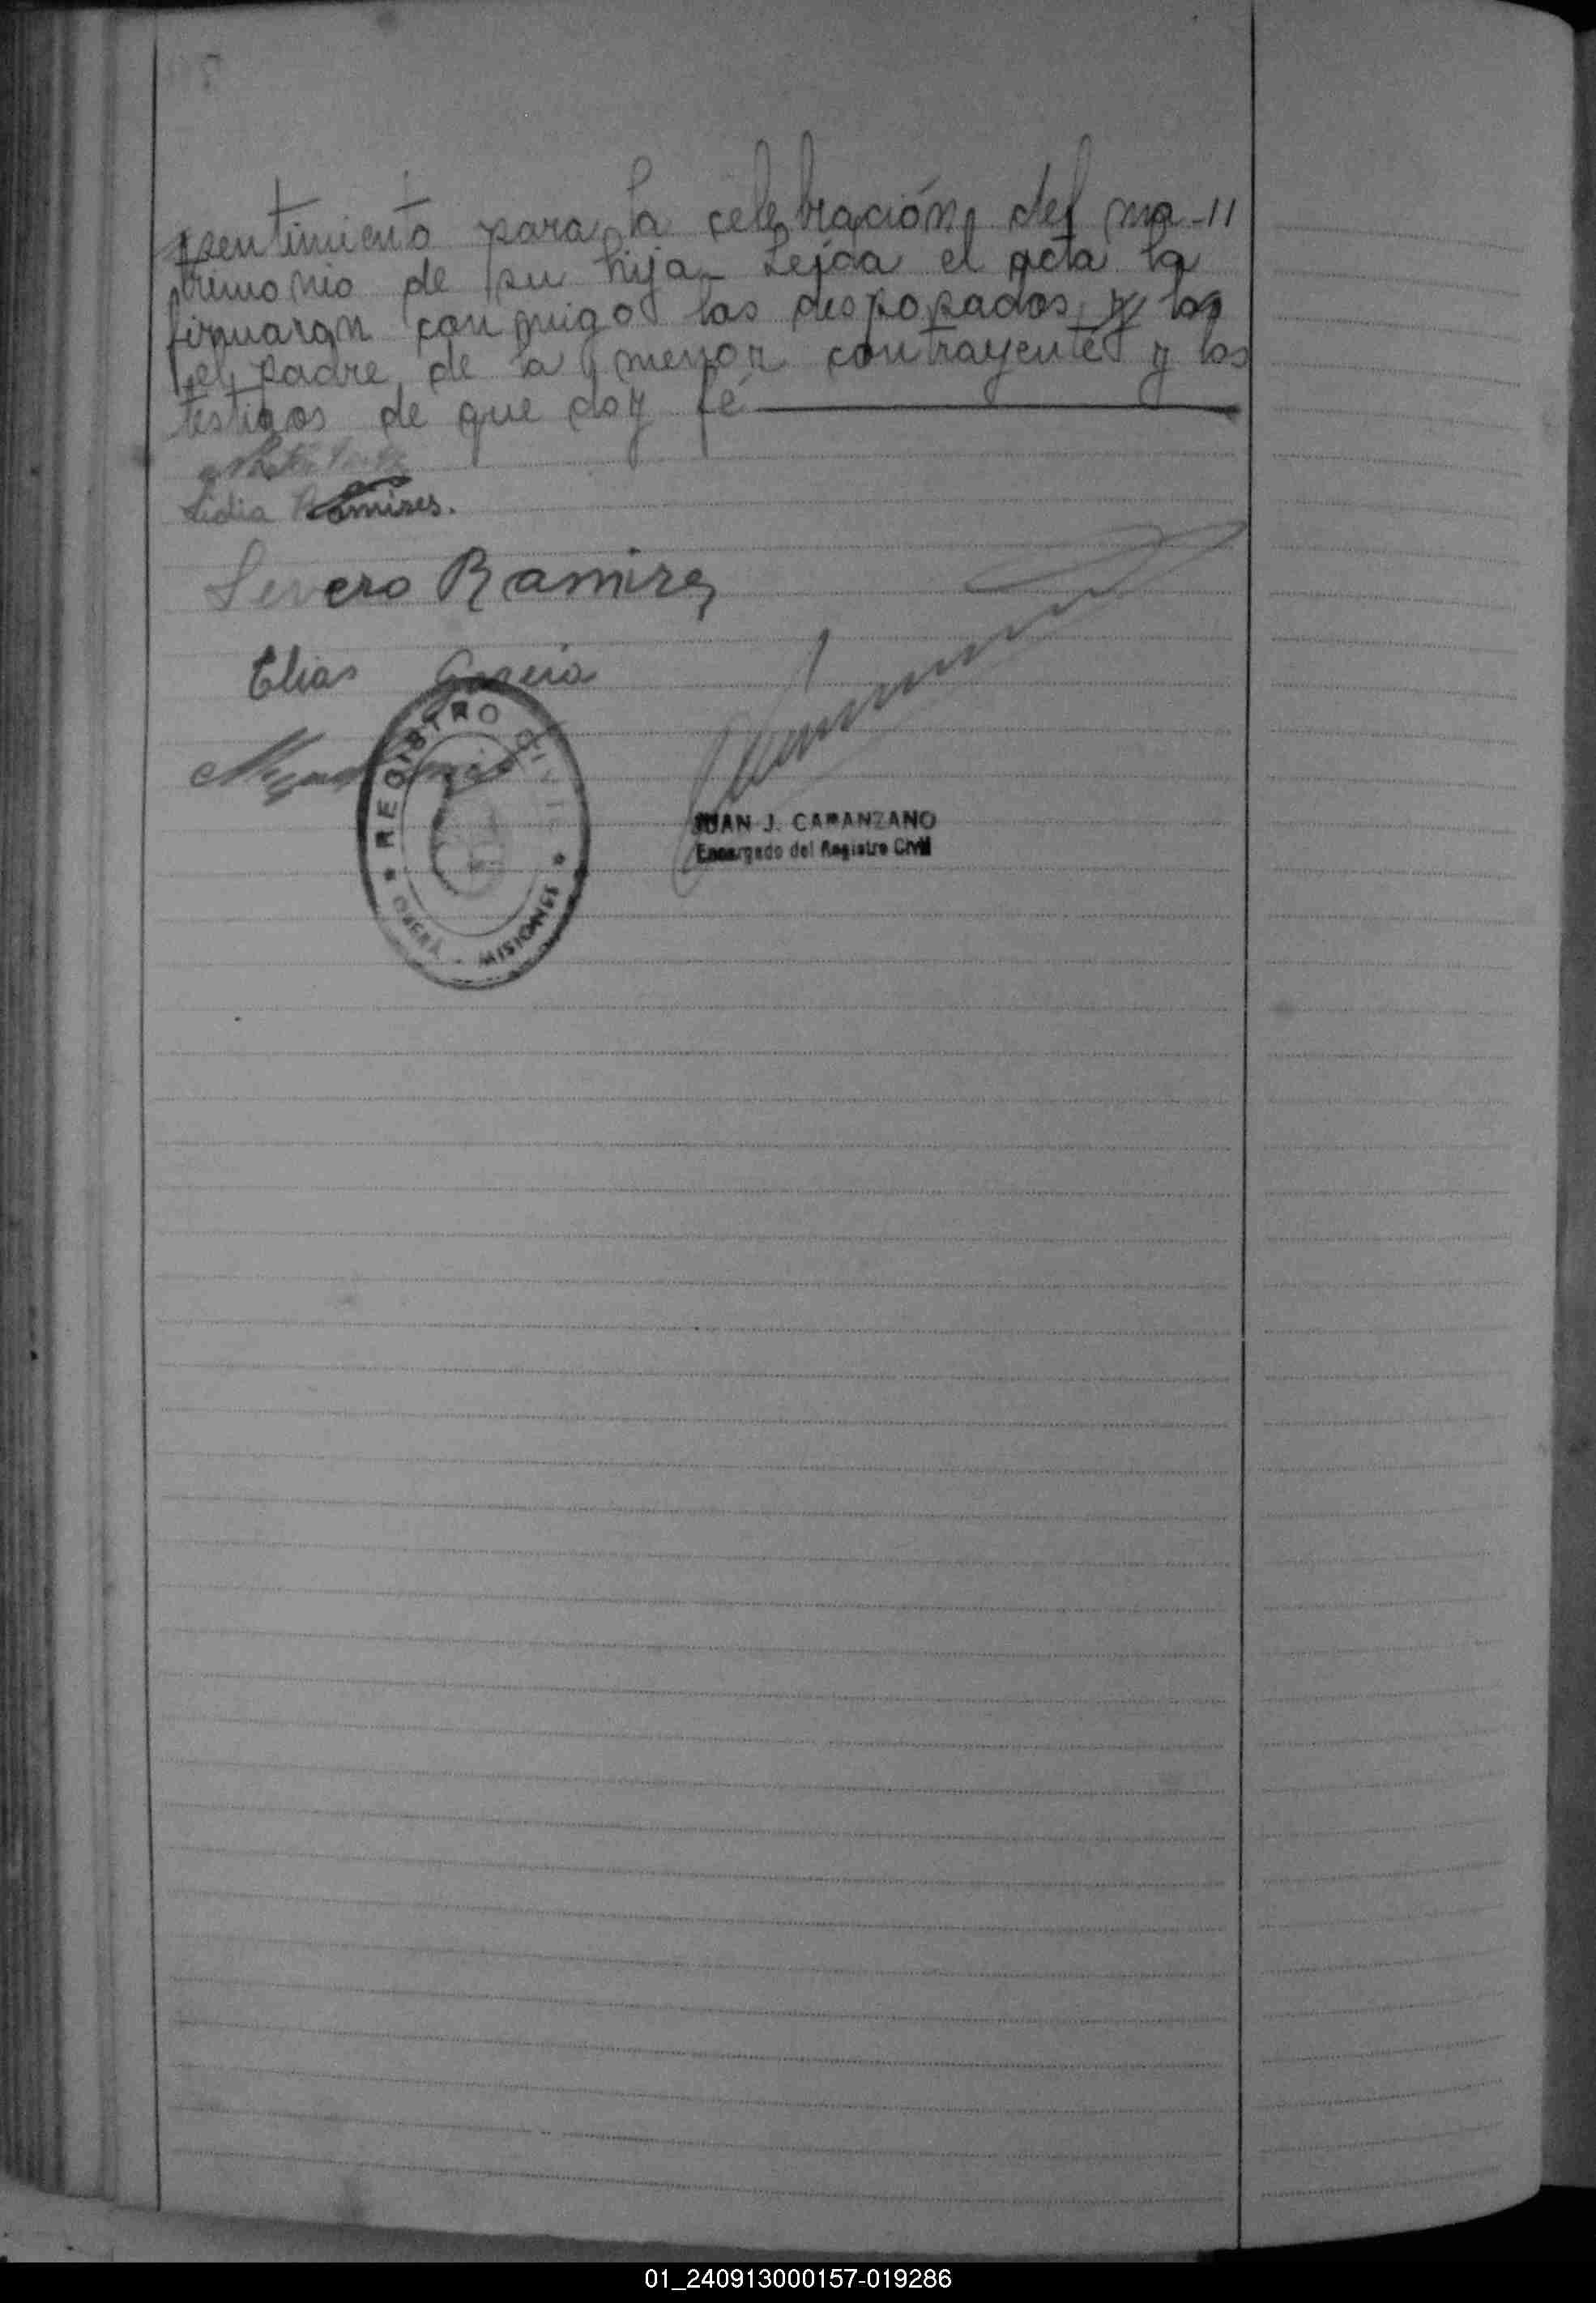 sentimiento para la celebración del ma-"
trimonio de su hija- Leída el acta la
firmaran conmigo los desposados, y los
el padre de la menor contrayente y los
testigos de que doy fé
Lidia Ramires.
Severo Ramirez
Elias Garcia
REGISTRO CIVIL
OBERÁ - MISIONES
JUAN J. CARANZANO
Encargado del Registro Civil
01_240913000157-019286